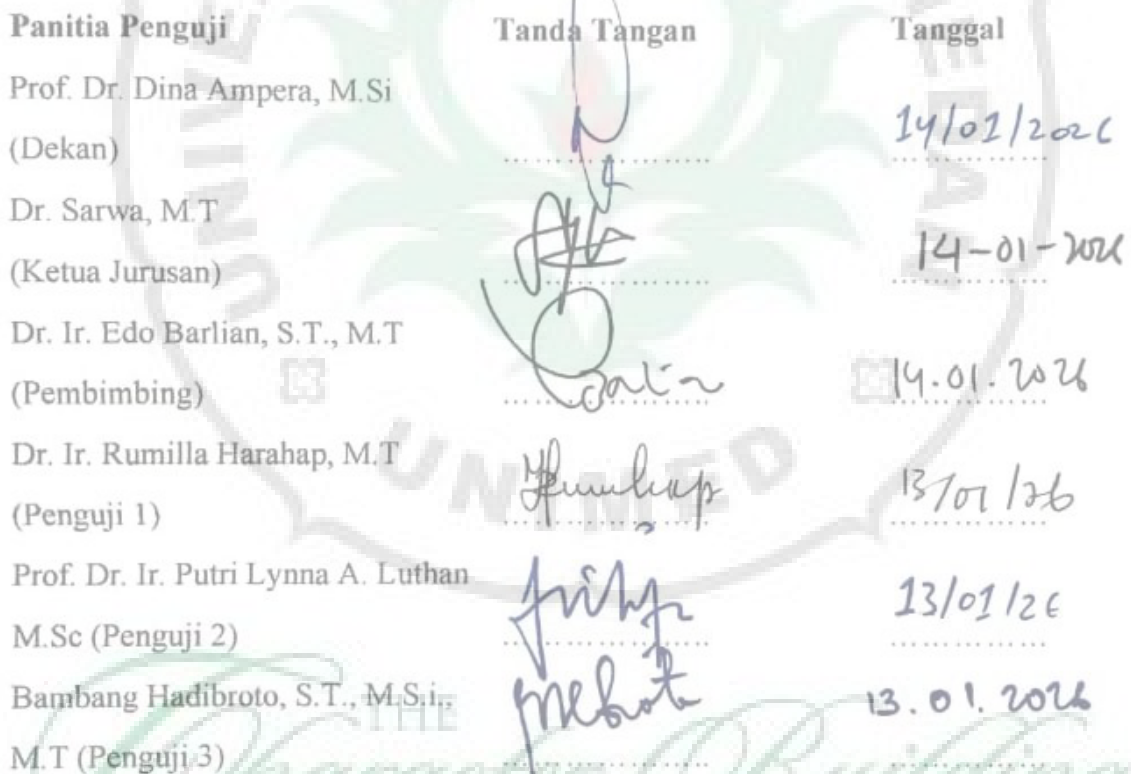 Panitia Penguji Tanda Tangan Tanggal
Prof. Dr. Dina Ampera, M.Si
(Dekan) .................... 14/01/2026
Dr. Sarwa, M.T
(Ketua Jurusan) .................... 14-01-2026
Dr. Ir. Edo Barlian, S.T., M.T
(Pembimbing) .................... 14.01.2026
Dr. Ir. Rumilla Harahap, M.T
(Penguji 1) .................... 13/01/26
Prof. Dr. Ir. Putri Lynna A. Luthan
M.Sc (Penguji 2) .................... 13/01/26
Bambang Hadibroto, S.T., M.S.i., 13.01.2026
M.T (Penguji 3) ....................
UNIMED
THE